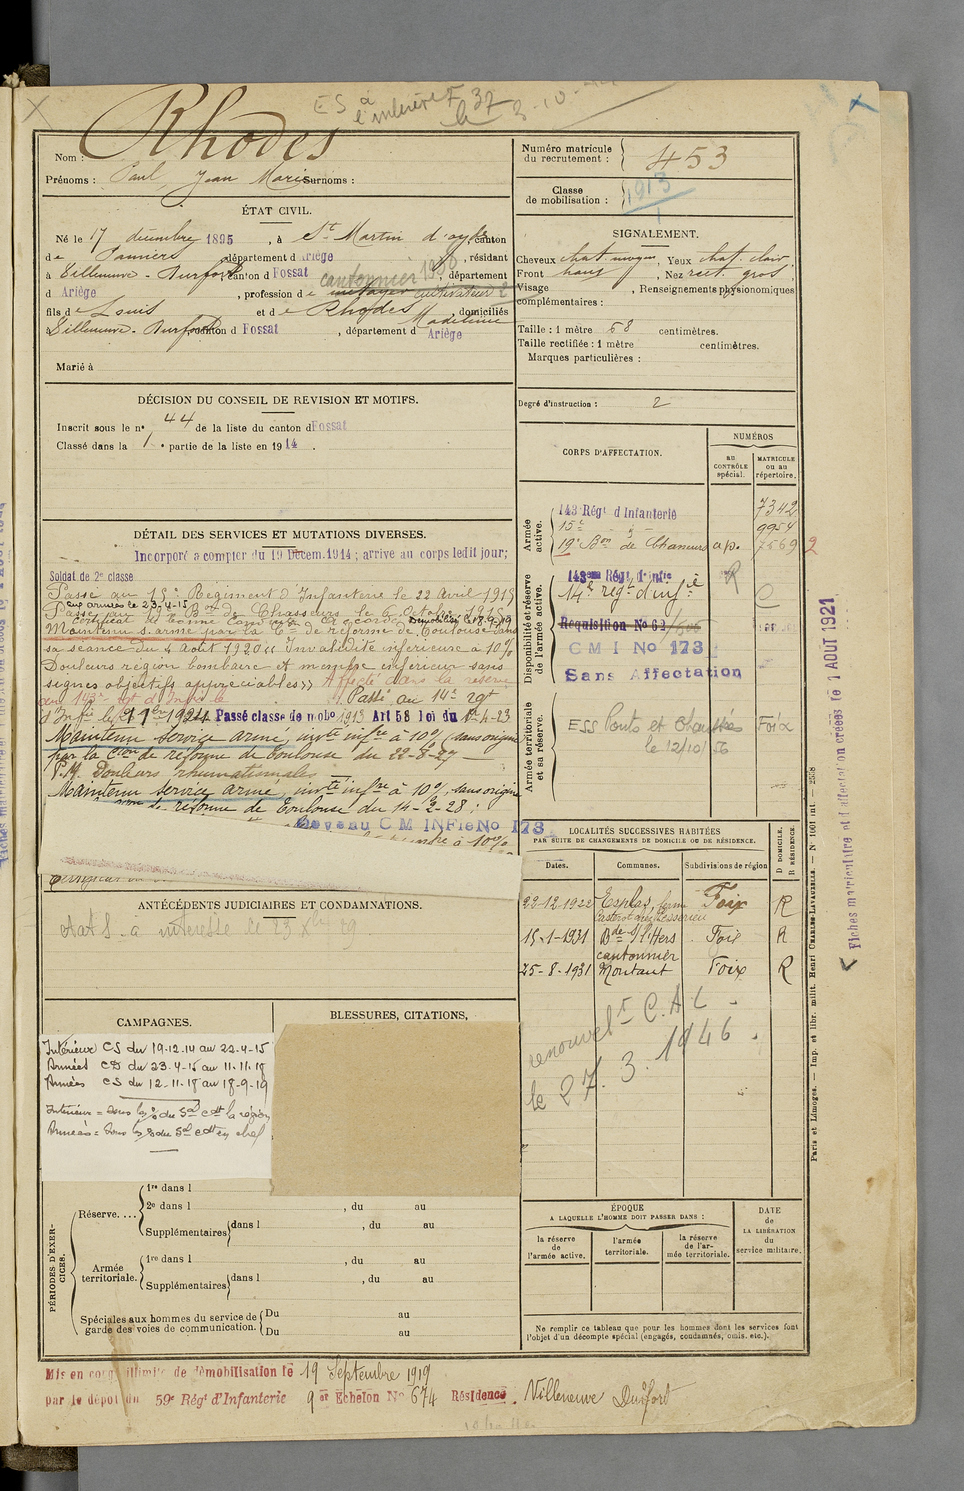 ES à l'intérieur F 37
Nom : Rhodes
Prénoms : Paul Jean Marie Surnoms :
Numéro matricule du recrutement : 453
Classe de mobilisation : 1913
ÉTAT CIVIL.
Né le 17 décembre 1895, à St Martin d'oydes canton
de Pamiers, département d Ariège, résidant
à Villeneuve-Durfort, canton d Fossat, département
d Ariège, profession de cultivateur cantonnier 1930
fils de Louis et de Rhodes Madeleine, domiciliés
à Villeneuve-Durfort canton d Fossat, département d Ariège
Marié à
SIGNALEMENT.
Cheveux chat. moyen, Yeux chat. clair,
Front haut, Nez rect. gros
Visage , Renseignements physionomiques
complémentaires :
Taille : 1 mètre 68 centimètres.
Taille rectifiée : 1 mètre centimètres.
Marques particulières :
Degré d'instruction : 2
DÉCISION DU CONSEIL DE REVISION ET MOTIFS.
Inscrit sous le n° 44 de la liste du canton d Fossat
Classé dans la 1e partie de la liste en 1914.
CORPS D'AFFECTATION.
NUMÉROS
au CONTRÔLE spécial.
MATRICULE ou au répertoire.
Armée active.
143 Régt d Infanterie 7342
15e 9954
19e Bon de Chasseurs à p. 7569 2
Disponibilité et réserve de l'armée active.
143eme Régt d'Infie R
14e régt d'infie
Réquisition No 62
C M I No 173
Sans Affectation
Armée territoriale et sa réserve.
ESS Ponts et Chaussées Foix
le 12/10/56
DÉTAIL DES SERVICES ET MUTATIONS DIVERSES.
Incorporé à compter du 19 Décem. 1914 ; arrivé au corps ledit jour;
Soldat de 2e classe
Passé au 15e Régiment d'Infanterie le 22 Avril 1915
aux armées le 23-4-15
Passé au 19e Bon de Chasseurs le 6 Octobre 1915
Certificat de bonne conduite accordé Démobilisé le 18-9-19
Maintenu s. armé par la Con de réforme de Toulouse dans
sa séance du 4 Août 1920 "Invalidité inférieure à 10%
Douleurs région lombaire et membre inférieur sans
signes objectifs appréciables" Affecté dans la réserve
au 143e rgt d'Infie le Passé au 14e rgt
d'Infie le 1924 Passé classe de mobe 1913 Art 58 loi du 1er-4-23
Maintenu service armé, invté infre à 10%, sans origine
par la Cion de réforme de Toulouse du 22-8-27
P.M. Douleurs rhumatismales
Maintenu service armé, invté infre à 10%, sans origine
réforme de Toulouse du 14-2-28 :
Deveau C M INFie No 173
à 10%
LOCALITÉS SUCCESSIVES HABITÉES
PAR SUITE DE CHANGEMENTS DE DOMICILE OU DE RÉSIDENCE.
Dates. Communes. Subdivisions de région
D DOMICILE. R RÉSIDENCE.
22-12-1922 Esplas, ferme Foix R
15-1-1931 Bde s/ l'Hers Foix R
cantonnier
25-8-1931 Montaut Foix R
renouvelt C.A.L.
le 27.3.1946.
ANTÉCÉDENTS JUDICIAIRES ET CONDAMNATIONS.
à intéressé le 23 Xbre 29
CAMPAGNES.
BLESSURES, CITATIONS,
Intérieur CS du 19-12-14 au 22-4-15
Armées CD du 23-4-15 au 11-11-18
Armées CS du 12-11-18 au 18-9-19
Intérieur = Sous les o/ du Gal Cdt la région
Armées = Sous les o/ du Gal Cdt en chef
PÉRIODES D'EXERCICES.
Réserve....
1re dans l
2e dans l , du au
Supplémentaires dans l , du au
Armée territoriale.
1re dans l , du au
Supplémentaires dans l , du au
Spéciales aux hommes du service de garde des voies de communication.
Du au
Du au
ÉPOQUE
A LAQUELLE L'HOMME DOIT PASSER DANS :
la réserve de l'armée active.
l'armée territoriale.
la réserve de l'armée territoriale.
DATE de LA LIBÉRATION du service militaire.
Ne remplir ce tableau que pour les hommes dont les services font
l'objet d'un décompte spécial (engagés, condamnés, omis, etc.).
Mis en congé illimité de démobilisation le 19 Septembre 1919
par le dépôt du 59e Régt d'Infanterie 9e Echelon No 674 Résidence. Villeneuve Durfort
Paris et Limoges. — Imp. et libr. milit. Henri CHARLES-LAVAUZELLE. — N° 1601 int. — 2558
Fiches matriculaire et d'affectation créées le 1 AOUT 1921